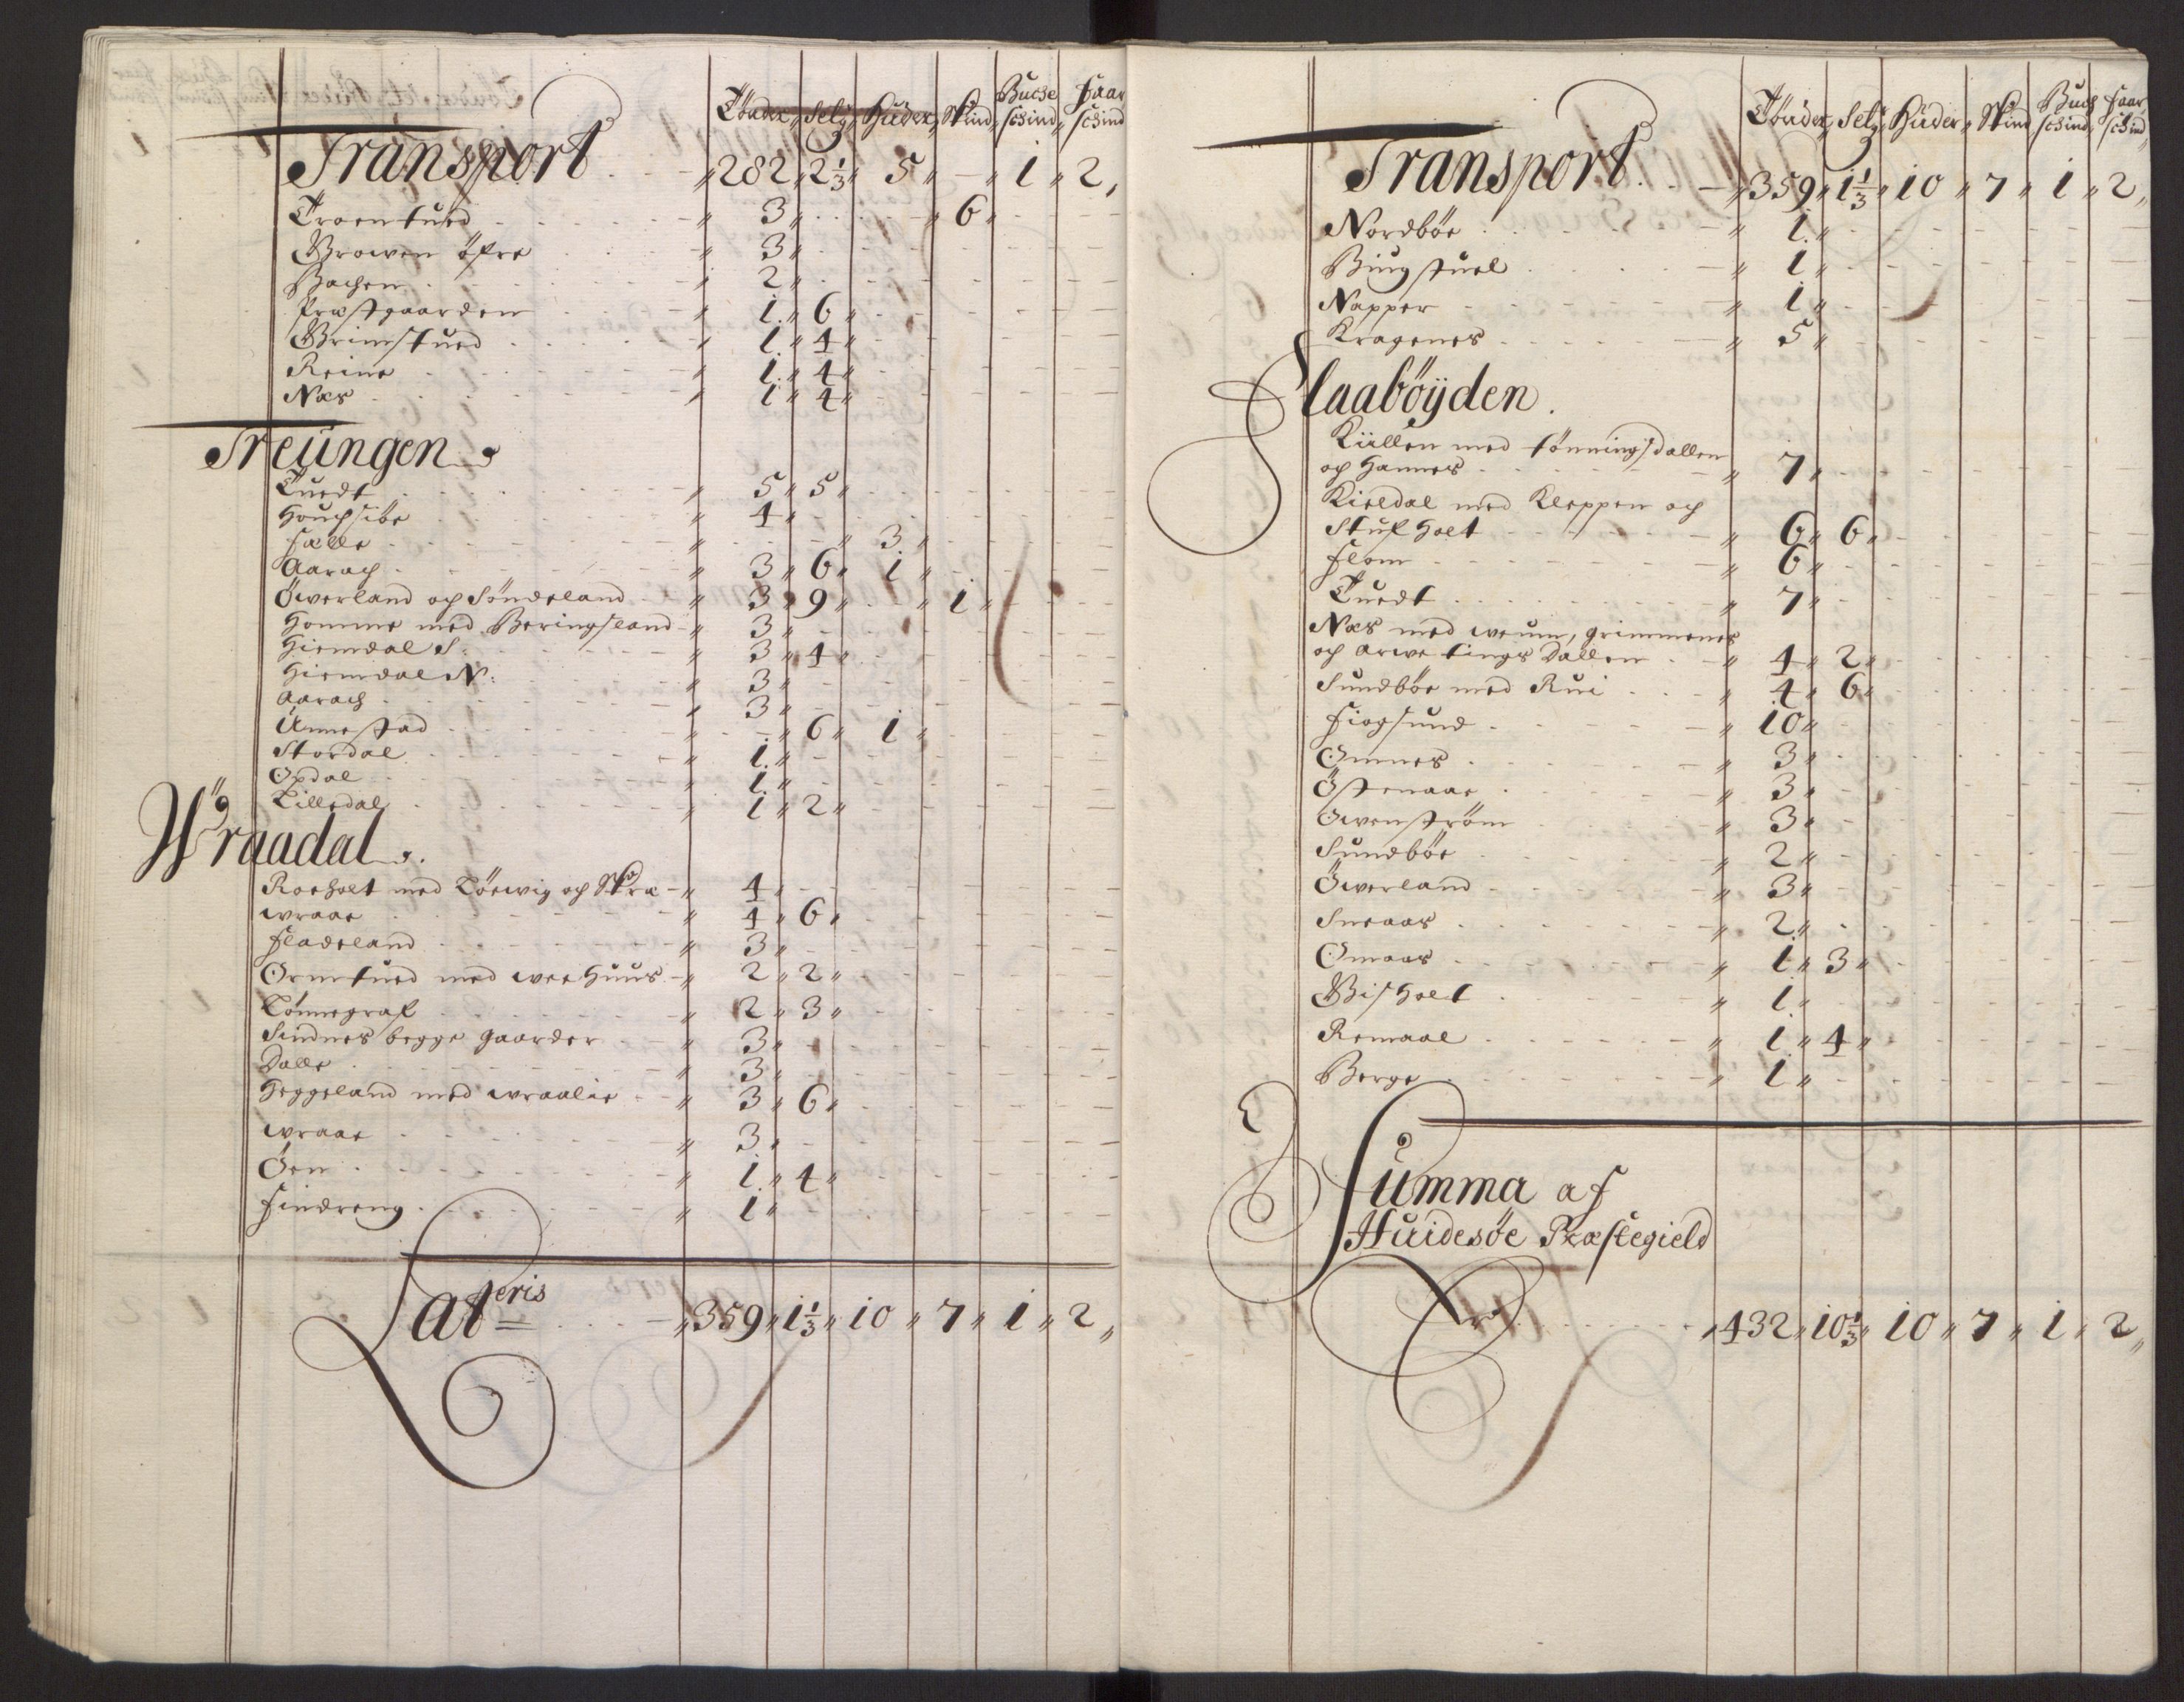 Tönder, Setz, Huder, Skind, Buckeschind, Faarschind
Transport 282 2 1/3 5 - 1 2
Troentued 3 6
Browen öfre 3
Bachen 2
Præstgaarden 1 6
Brimstued 1 4
Reine 1 4
Næs 1 4
Treungen
Tuedt 5 5
Houchsiöe 4
Fælle 3
Aarach 3 6 1
Öwerland och Sönderland 3 9 1
Homme med Beringsland 3
Hiemdal S: 3 4
Hiemdal N: 3
Aarach 3
Unnestad 6 1
Stordal 1
Opdal 1
Lilledal 1 2
Wraadal
Roeholt med Löewig och Skræ 4
wraae 4 6
Fladeland 3
Ormtued med wee Huus 2 2
Lönnegraf 2 3
Sindnes begge gaarder 3
Dalle 3
Heggeland med wraalie 3 6
wraae 3
Öen 1 4
Findreng 1
Lateris 359 1 1/3 10 7 1 2
Tönder, Setz, Huder, Skind, Buchschind, Faarschind
Transport 359 1 1/3 10 7 1 2
Nordböe 1
Bingstuel 1
Napper 1
Kragenes 5
Flaabÿden
Kiillen med tönningsdallen
och Hannes 7
Kieldal med Kleppen och
Stufholt 6 6
Flom 6
Tuedt 7
Næs med weum, grimmenes
och arwe tings Dallen 4 2
Sundböe med Rui 4 6
Fiogsund 10
Omnes 3
Östenaae 3
Owenström 3
Sundböe 2
Öwerland 3
Sneaas 2
Omaas 1 3
Bisholt 1
Remaal 1 4
Berge 1
Summa af
Huidesöe Præstegield
432 10 1/3 10 7 1 2